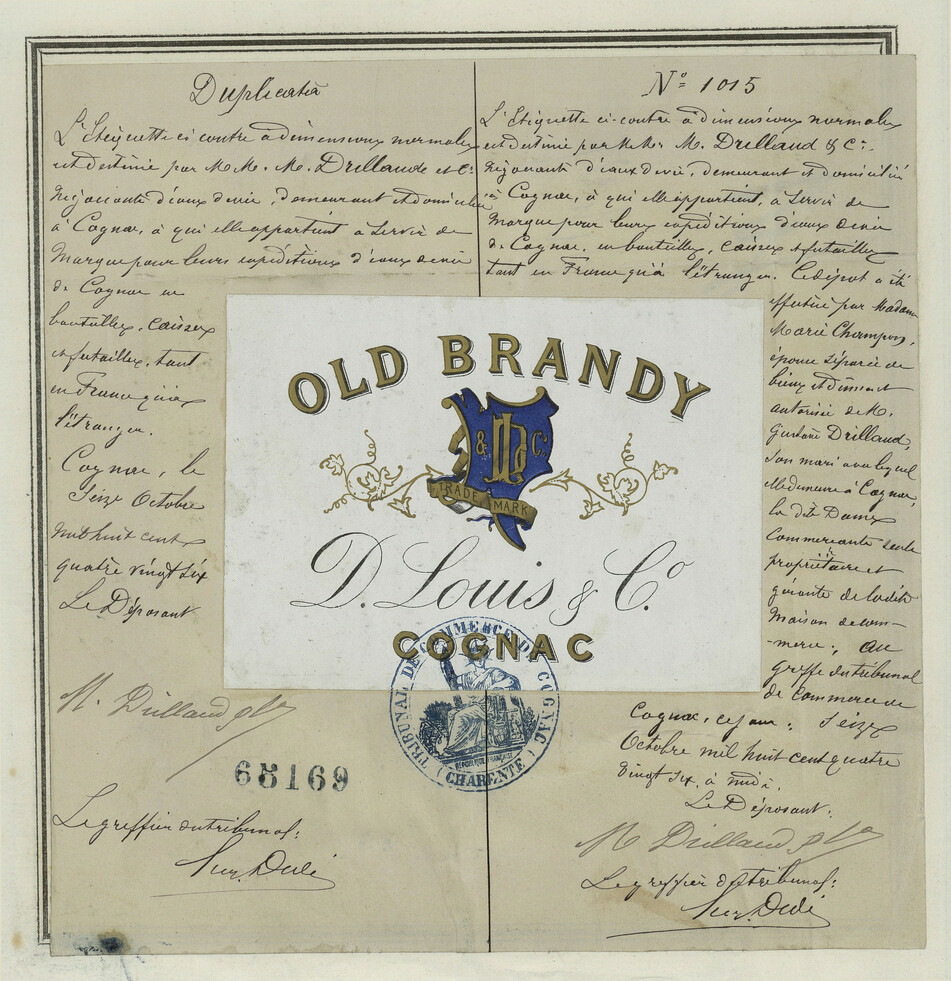 Duplicata
L'Etiquette ci contre à dimensions normales
est destinée par M M. M. Drillaud et Cie
Négociants d'eaux de vie, demeurant et domiciliés
à Cognac, à qui elle appartient à servir de
Marque pour leurs expéditions d'eaux de vie
de Cognac en
bouteilles, caisses
et futailles, tant
en France qu'à
l'étranger.
Cognac, le
Seize Octobre
mil huit cent
quatre vingt six
Le Déposant
M. Drillaud & Cie
65169
Le greffier du tribunal:
No 1015
L'Etiquette ci-contre à dimensions normales
est destinée par MMrs M. Drillaud & Cie
Négociants d'eaux de vie, demeurant et domiciliés
à Cognac, à qui elle appartient, à servir de
Marque pour leurs expéditions d'eaux de vie
de Cognac, en bouteilles, caisses et futailles
tant en France qu'à l'étranger. Ce dépot a été
effectué par Madame
Marie Champion,
épouse séparée de
biens et dûment
autorisée de M.
Gustave Drillaud,
son mari avec lequel
elle demeure à Cognac,
la dite Dame
Commerçante seule
propriétaire et
gérante de la dite
Maison de com-
-merce, au
greffe du tribunal
de commerce de
Cognac, ce jour, Seize
Octobre mil huit cent quatre
vingt six à midi.
Le Déposant.
M Drillaud & Cie
Le greffier du tribunal:
OLD BRANDY
& MD Co
TRADE MARK
D. Louis & Co.
COGNAC
TRIBUNAL DE COMMERCE DE COGNAC
REPUBLIQUE FRANÇAISE
(CHARENTE)